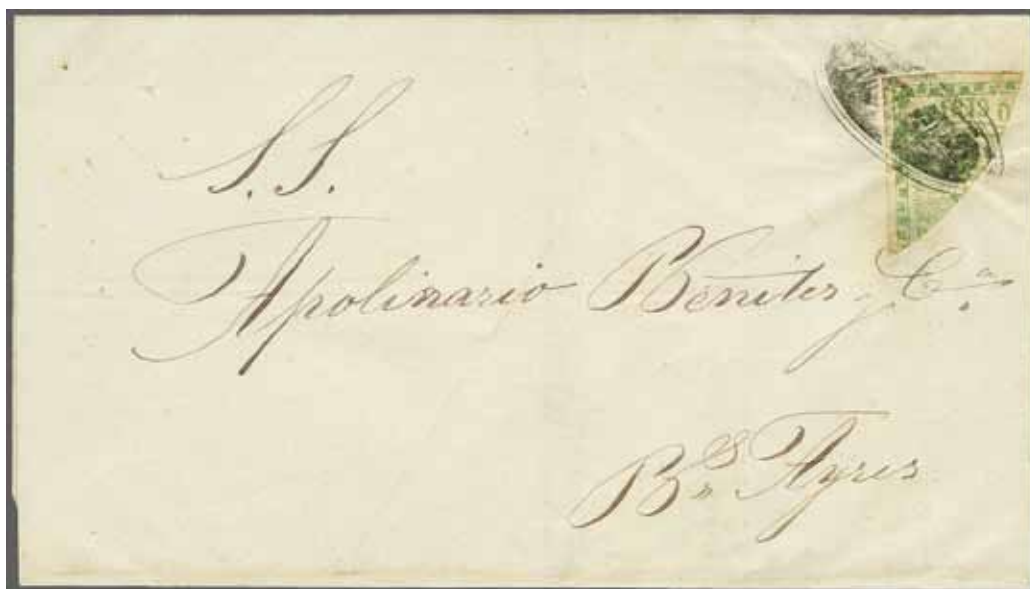 S. S.
Apolinario Benites y C.ª
B.s Ayres